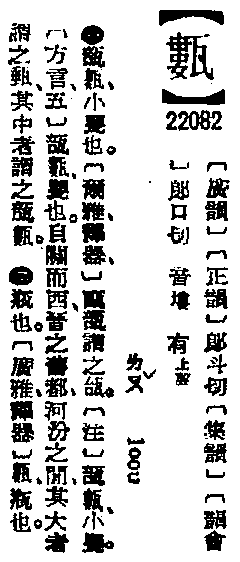 【甊】
22082
〔廣韻〕〔正韻〕郎斗切〔集韻〕〔韻會
〕郎口切 音塿 有上聲
ㄌㄡˇ loou
㊀瓿甊、小甖也。〔爾雅、釋器〕甌瓿謂之瓵。〔注〕瓿甊、小甖。
〔方言、五〕瓿甊、甖也。自關而西晉之舊都河汾之閒、其大者
謂之甀、其中者謂之瓿甊。㊁瓶也。〔廣雅、釋器〕甊、瓶也。